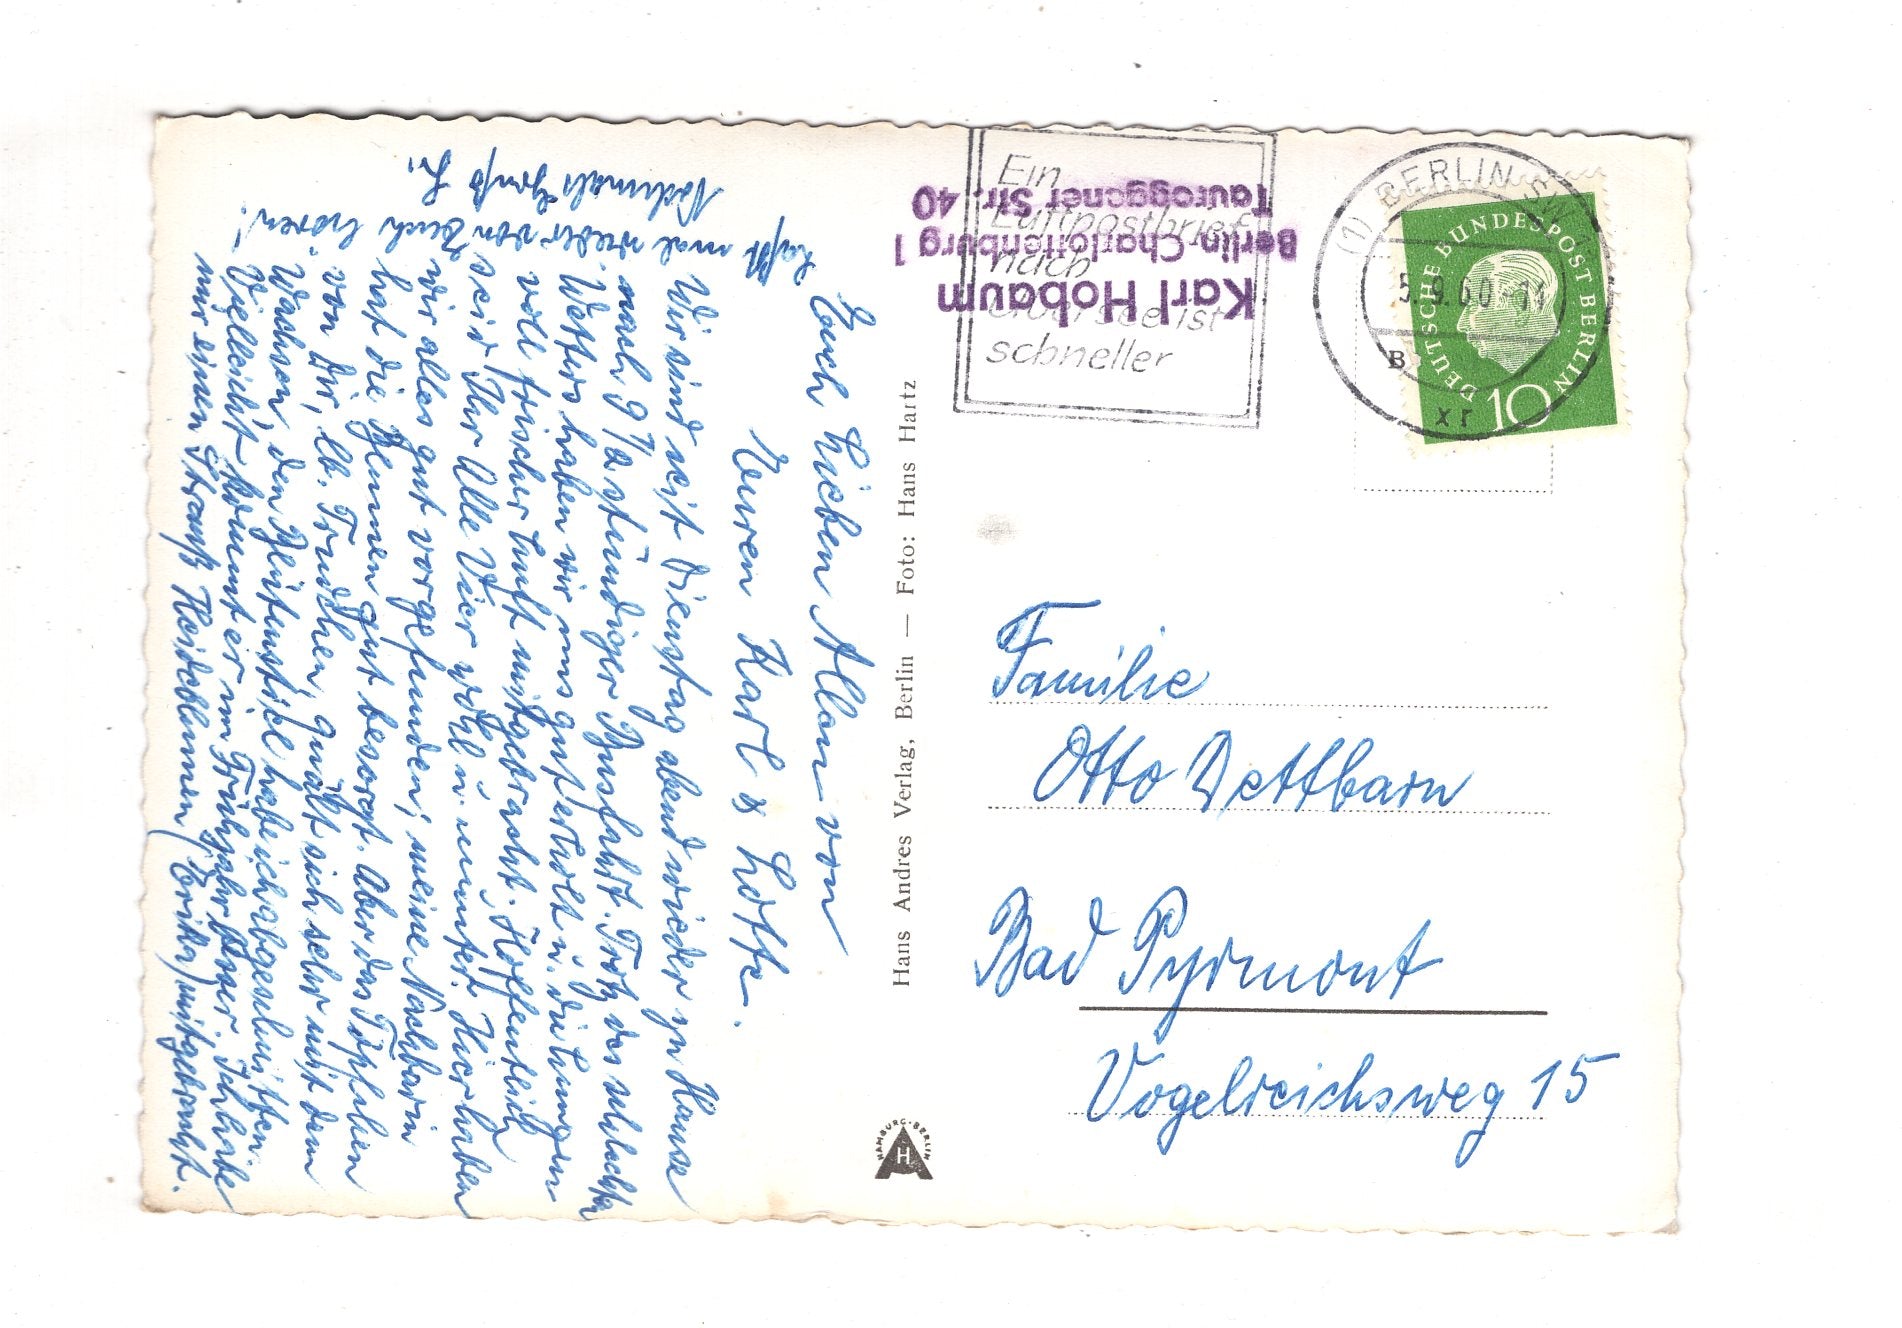 Euch Lieben Allen von
Euren Karl & Lotte.
Wir sind seit Dienstag abend wieder zu Hause
nach 9½ stündiger Busfahrt. Trotz des schlechten
Wetters haben wir uns gut erholt u. die Lungen
voll frischer Luft mitgebracht. Hoffentlich
seid Ihr Alle Vier wohl u. munter. Hier haben
wir alles gut vorgefunden, meine Nachbarin
hat die Blumen gut besorgt. Aber das Töpfchen
von Dir, lb. Trudchen, quält sich sehr mit dem
Wachsen, den Blütenstiel habe ich abgeschnitten.
Vielleicht kommt er im Frühjahr besser. Ich habe
mir einen Strauß Heideblumen (Erika) mitgebracht.
Laßt mal wieder von Euch hören!
Nochmals Gruß
Karl Hobaum
Berlin-Charlottenburg 1
Tauroggener Str. 40
Ein
Luftpostbrief
nach
Übersee ist
schneller
(1) BERLIN SW
5.9.60
B
xr
DEUTSCHE BUNDESPOST BERLIN
10
Hans Andres Verlag, Berlin — Foto: Hans Hartz
HAMBURG-BERLIN
H
Familie
Otto Dettbarn
Bad Pyrmont
Vogelreichsweg 15